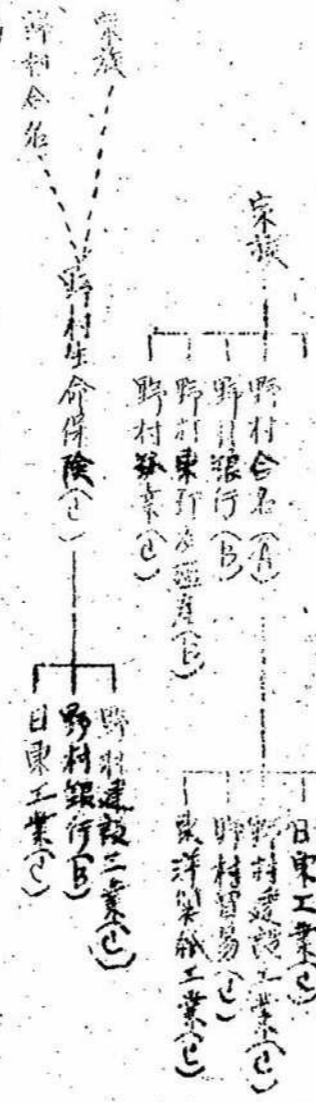 家族
野村合名(A)
野村銀行(B)
野村東印度殖産(B)
野村鉱業(C)
日東工業(C)
野村建設工業(C)
野村貿易(C)
東洋製紙工業(C)
家族
野村合名
野村生命保険(C)
野村建設工業(C)
野村銀行(B)
日東工業(C)